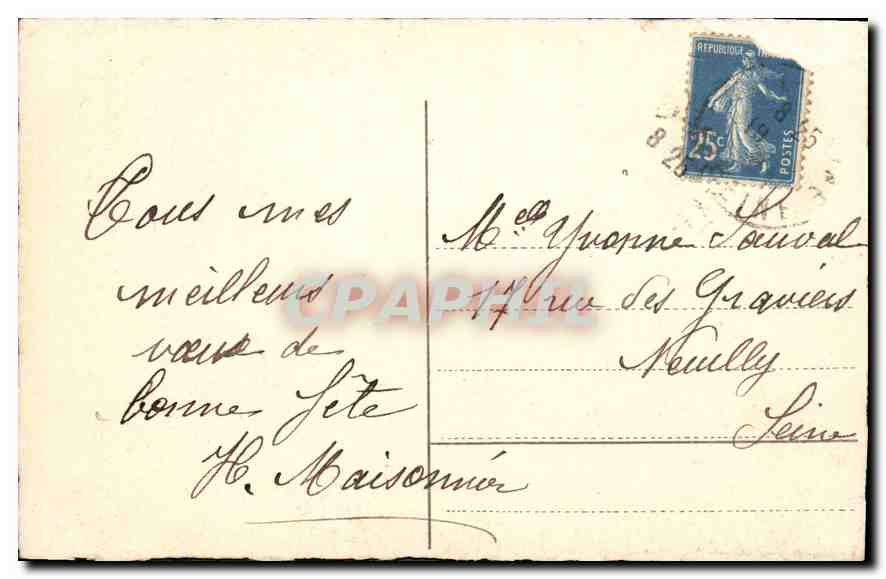 Tous mes
meilleurs
vœux de
bonne fête
H. Maisonnier
REPUBLIQUE
25c
POSTES
8 25
Melle Yvonne Sauval
17 rue des Graviers
Neuilly
Seine
CPAPHIL